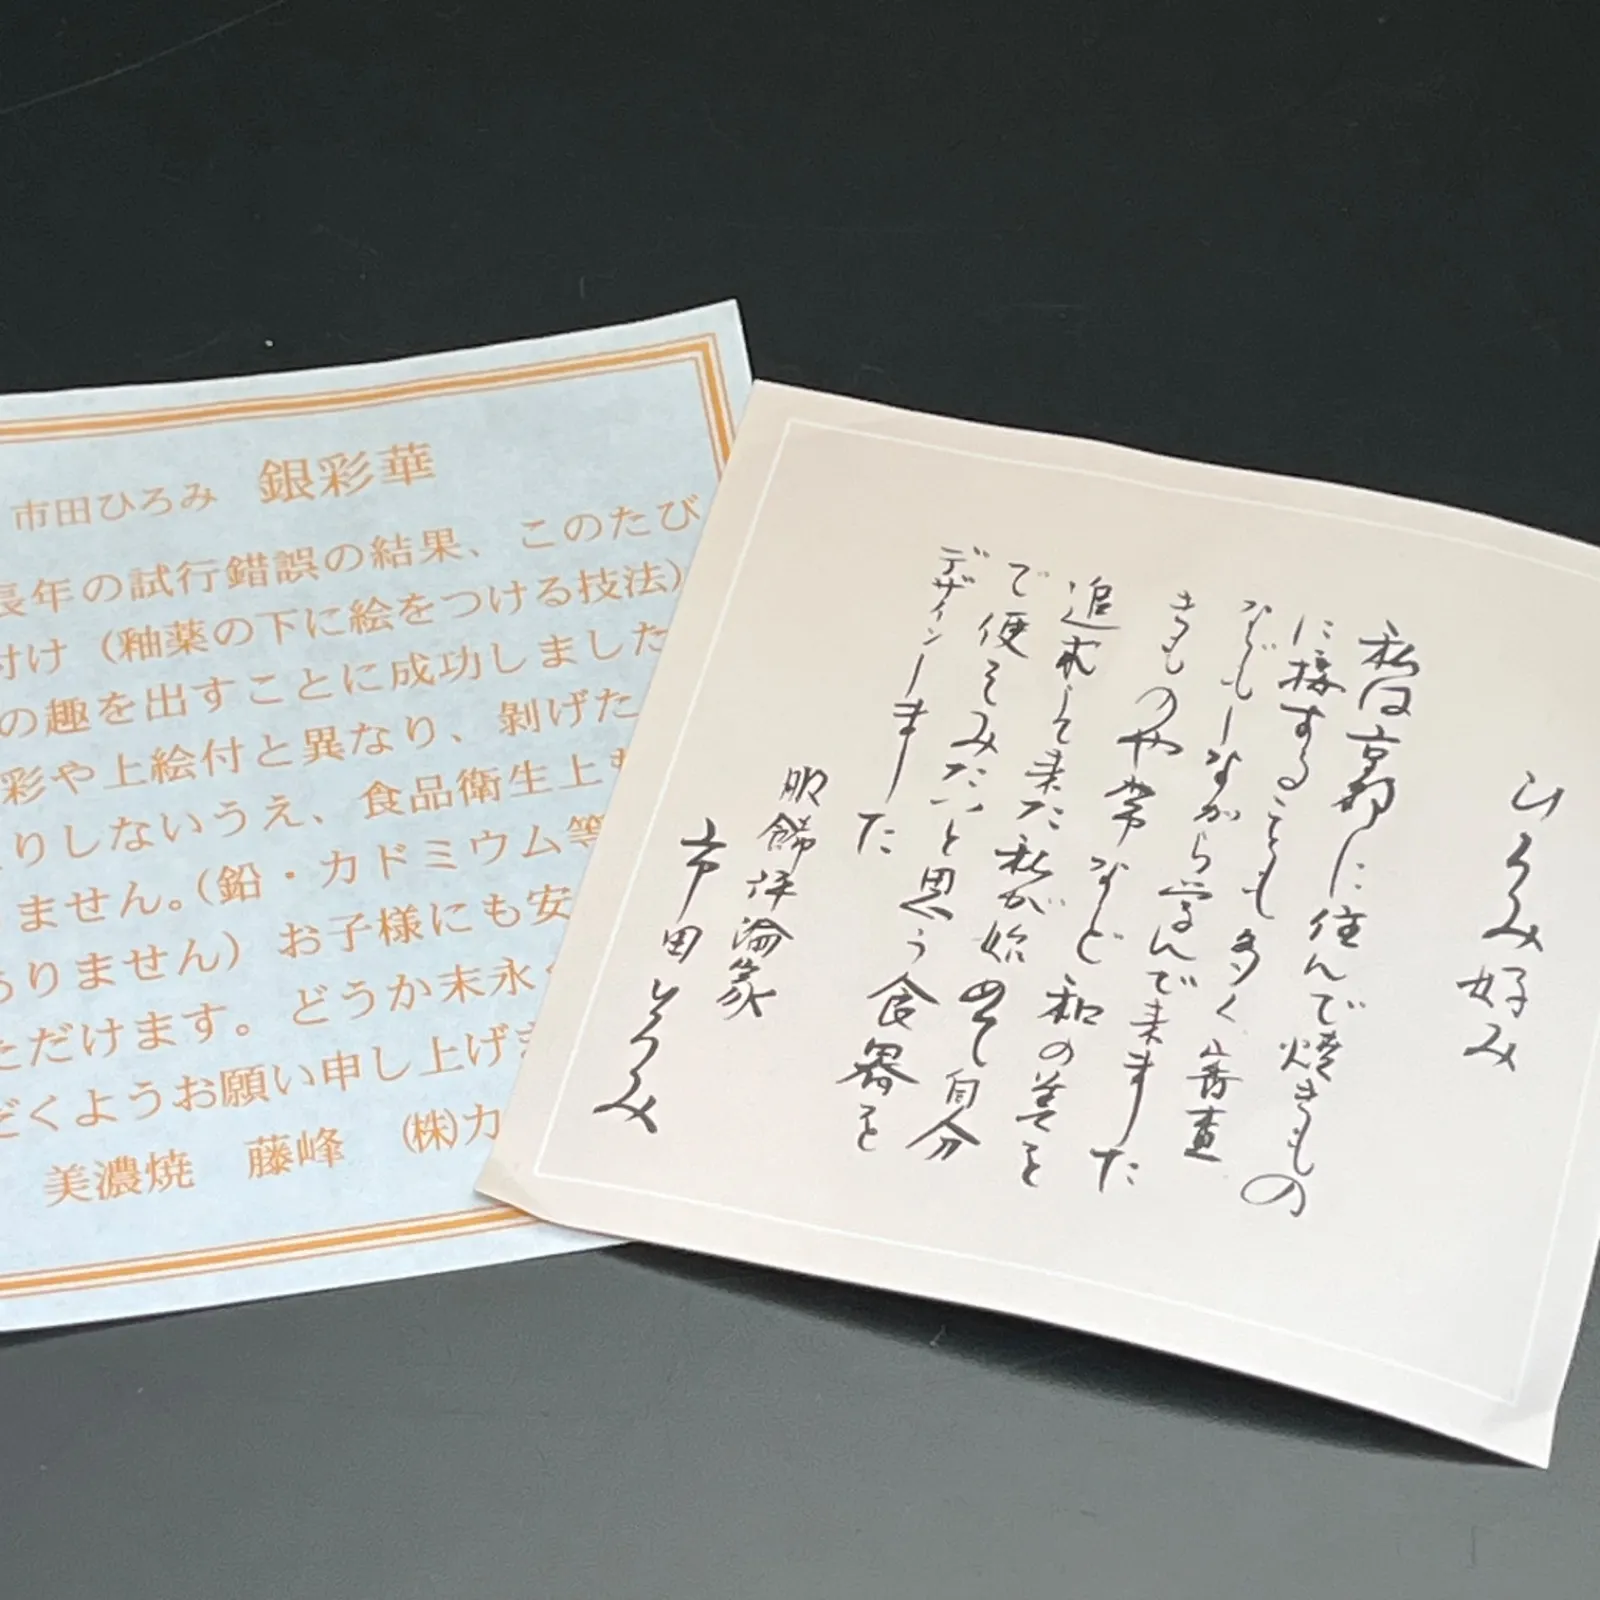 市田ひろみ 銀彩華
長年の試行錯誤の結果、このたび
付け（釉薬の下に絵をつける技法）
の趣を出すことに成功しました
彩や上絵付と異なり、剝げた
りしないうえ、食品衛生上も
ません。（鉛・カドミウム等
ありません）お子様にも安
ただけます。どうか末永く
だくようお願い申し上げま
美濃焼 藤峰 (株)カ
ひろみ好み
私は京都に住んで焼きもの
に接することも多く、審査
などもしながら学んで来ました
きものや帯など和の美を
追求して来た私が始めて自分
で使ってみたいと思う食器を
デザインしました
服飾評論家
市田ひろみ